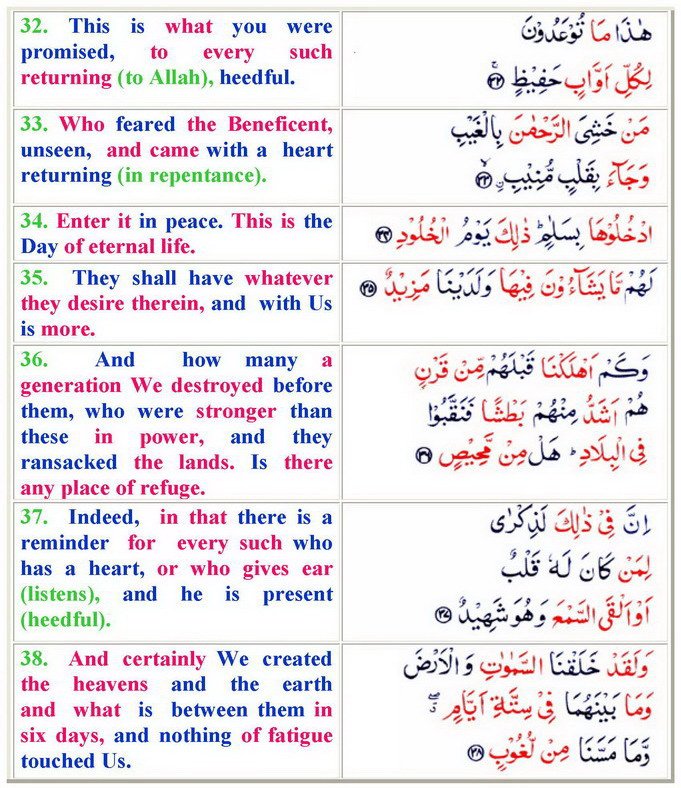 32. This is what you were
promised, to every such
returning (to Allah), heedful.
هٰذَا مَا تُوْعَدُوْنَ
لِكُلِّ اَوَّابٍ حَفِيْظٍ ۚ ﴿۳۲﴾
33. Who feared the Beneficent,
unseen, and came with a heart
returning (in repentance).
مَنْ خَشِىَ الرَّحْمٰنَ بِالْغَيْبِ
وَجَآءَ بِقَلْبٍ مُّنِيْبِ ۙ ﴿۳۳﴾
34. Enter it in peace. This is the
Day of eternal life.
ادْخُلُوْهَا بِسَلٰمٍ ؕ ذٰلِكَ يَوْمُ الْخُلُوْدِ ﴿۳۴﴾
35. They shall have whatever
they desire therein, and with Us
is more.
لَهُمْ مَّا يَشَآءُوْنَ فِيْهَا وَلَدَيْنَا مَزِيْدٌ ﴿۳۵﴾
36. And how many a
generation We destroyed before
them, who were stronger than
these in power, and they
ransacked the lands. Is there
any place of refuge.
وَكَمْ اَهْلَكْنَا قَبْلَهُمْ مِّنْ قَرْنٍ
هُمْ اَشَدُّ مِنْهُمْ بَطْشًا فَنَقَّبُوْا
فِى الْبِلَادِ ؕ هَلْ مِنْ مَّحِيْصٍ ﴿۳۶﴾
37. Indeed, in that there is a
reminder for every such who
has a heart, or who gives ear
(listens), and he is present
(heedful).
اِنَّ فِىْ ذٰلِكَ لَذِكْرٰى
لِمَنْ كَانَ لَهٗ قَلْبٌ
اَوْ اَلْقَى السَّمْعَ وَهُوَ شَهِيْدٌ ﴿۳۷﴾
38. And certainly We created
the heavens and the earth
and what is between them in
six days, and nothing of fatigue
touched Us.
وَلَقَدْ خَلَقْنَا السَّمٰوٰتِ وَالْاَرْضَ
وَمَا بَيْنَهُمَا فِىْ سِتَّةِ اَيَّامٍ ۖ
وَّمَا مَسَّنَا مِنْ لُّغُوْبٍ ﴿۳۸﴾